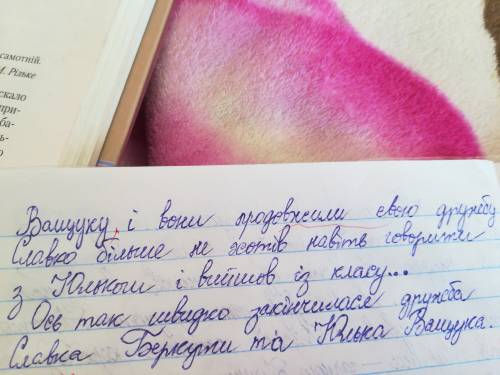 самотній.
М. Рільке
скало
при-
ба-
ь-
о
Ващуку, і вони продовжили свою дружбу
Славко більше не хотів навіть говорити
з Юльком і вийшов із класу...
Ось так швидко закінчилася дружба
Славка Беркути та Юлька Ващука.